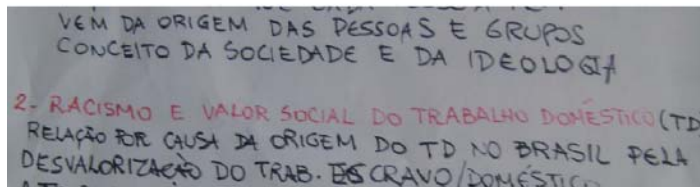 VEM DA ORIGEM DAS PESSOAS E GRUPOS
CONCEITO DA SOCIEDADE E DA IDEOLOGIA
2- RACISMO E VALOR SOCIAL DO TRABALHO DOMÉSTICO (TD
RELAÇÃO POR CAUSA DA ORIGEM DO TD NO BRASIL PELA
DESVALORIZAÇÃO DO TRAB. ESCRAVO/DOMÉSTICO